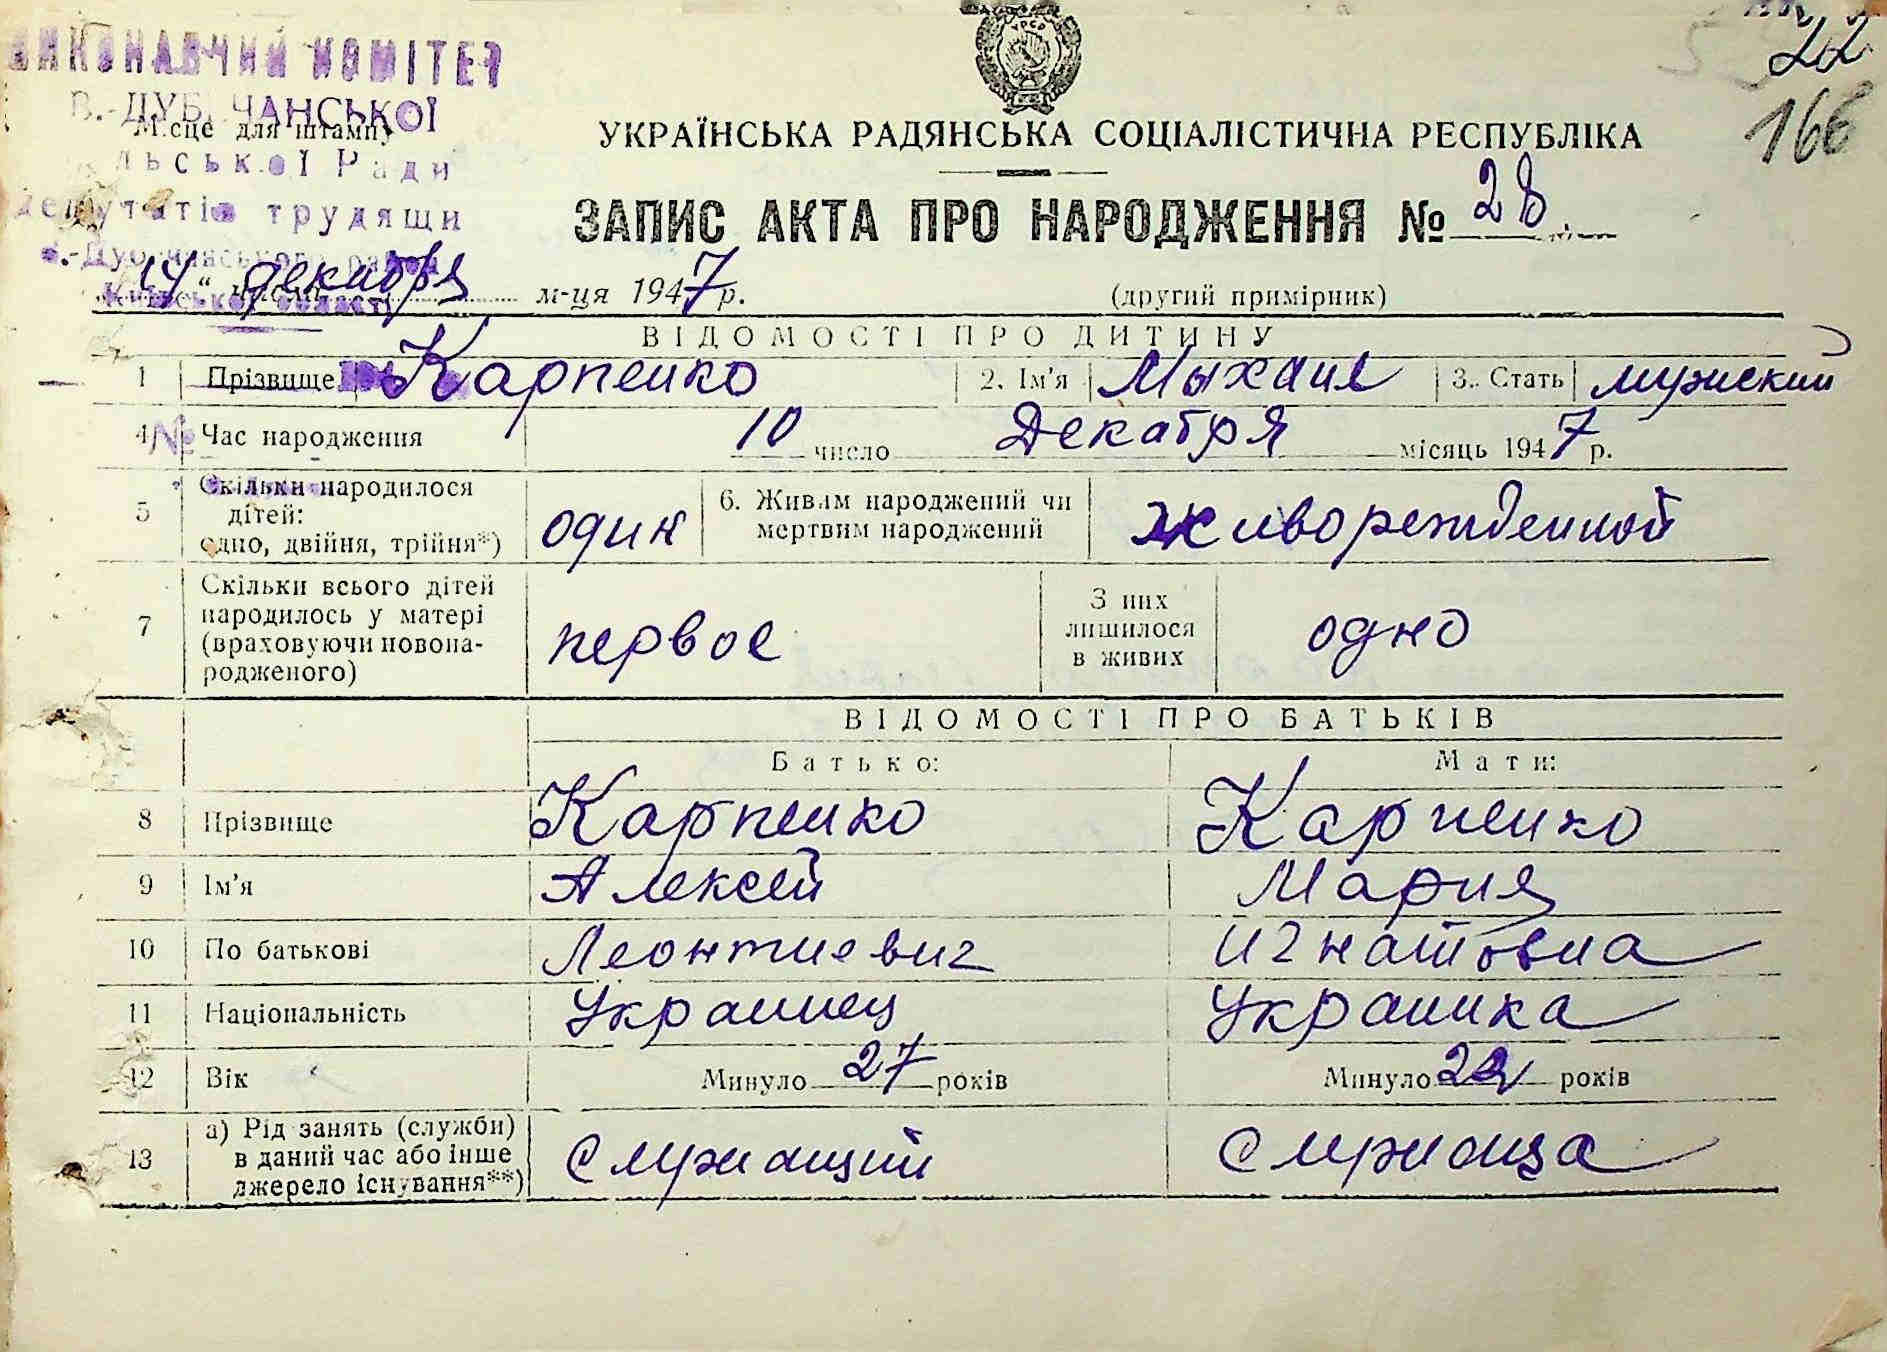 22
166
ВИКОНАВЧИЙ КОМІТЕТ
В.-ДУБЕЧАНСЬКОЇ
Місце для штампу
льської Ради
депутатів трудящи
В.-Дубечанського району
Київської області
УКРАЇНСЬКА РАДЯНСЬКА СОЦІАЛІСТИЧНА РЕСПУБЛІКА
ЗАПИС АКТА ПРО НАРОДЖЕННЯ № 28
"14" декабря м-ця 1947 р.
(другий примірник)
ВІДОМОСТІ ПРО ДИТИНУ
1 Прізвище Карпенко 2. Ім'я Мыхаил 3. Стать мужский
4 Час народження 10 число Декабря місяць 1947 р.
5 Скільки народилося дітей: одно, двійня, трійня*) один 6. Живим народжений чи мертвим народжений живорежденной
7 Скільки всього дітей народилось у матері (враховуючи новонародженого) первое З них лишилося в живих одно
ВІДОМОСТІ ПРО БАТЬКІВ
Батько: Мати:
8 Прізвище Карпенко Карпенко
9 Ім'я Алексей Мария
10 По батькові Леонтиевич Игнатовна
11 Національність Украинец Украинка
12 Вік Минуло 27 років Минуло 22 років
13 а) Рід занять (служби) в даний час або інше джерело існування**) Служащий Служаща